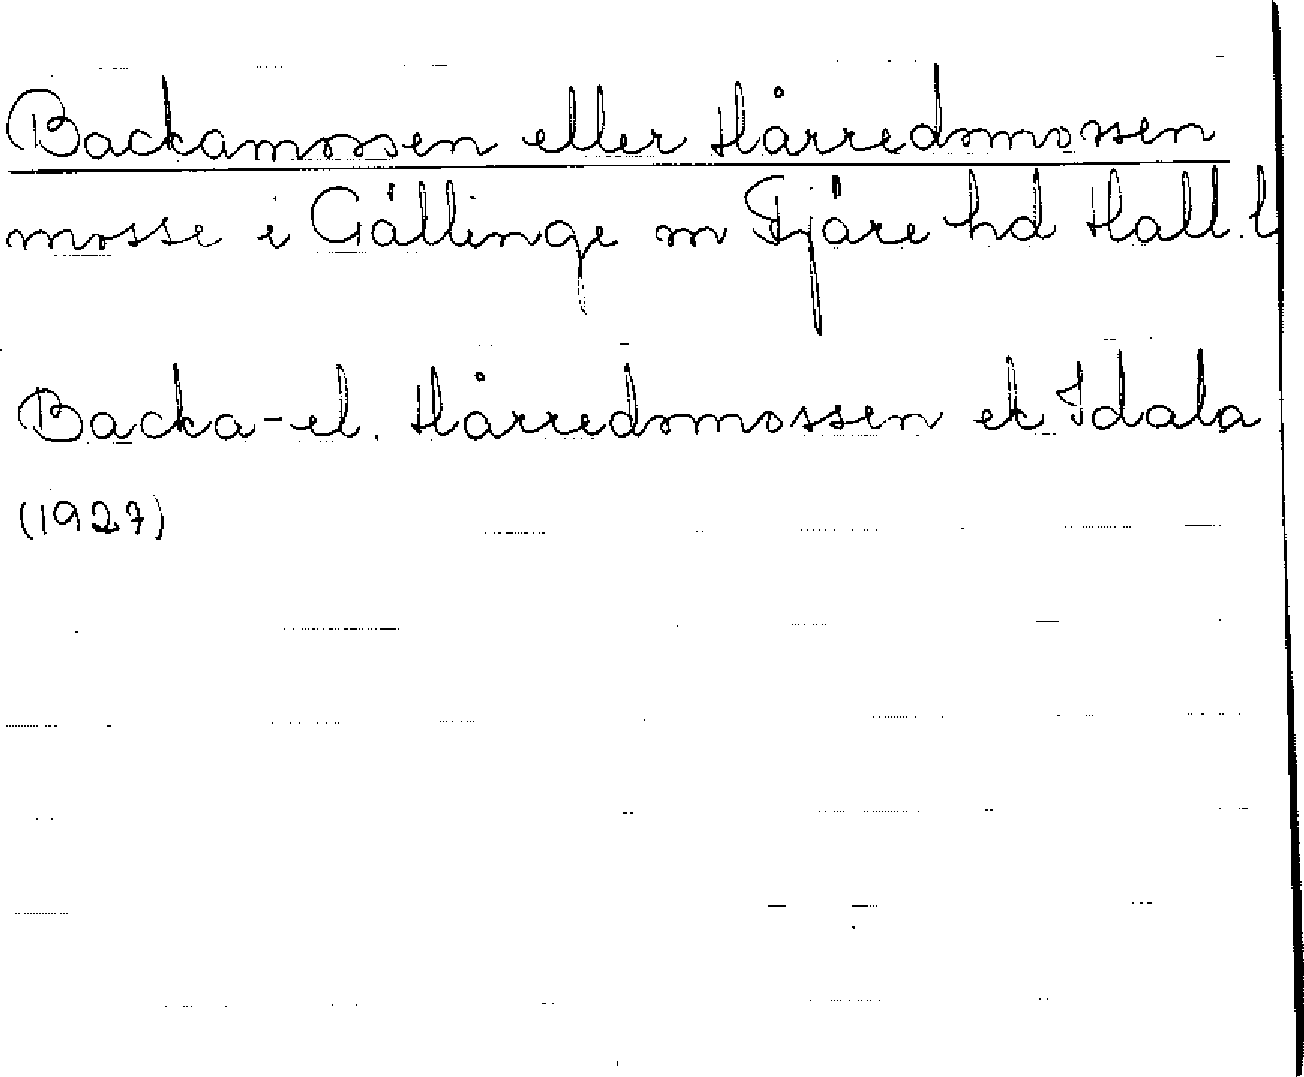 Backamossen eller Hårredsmossen
mosse i Gällinge sn Fjäre hd Hall. l
Backa- el. Hårredsmossen ek Idala
(1927)